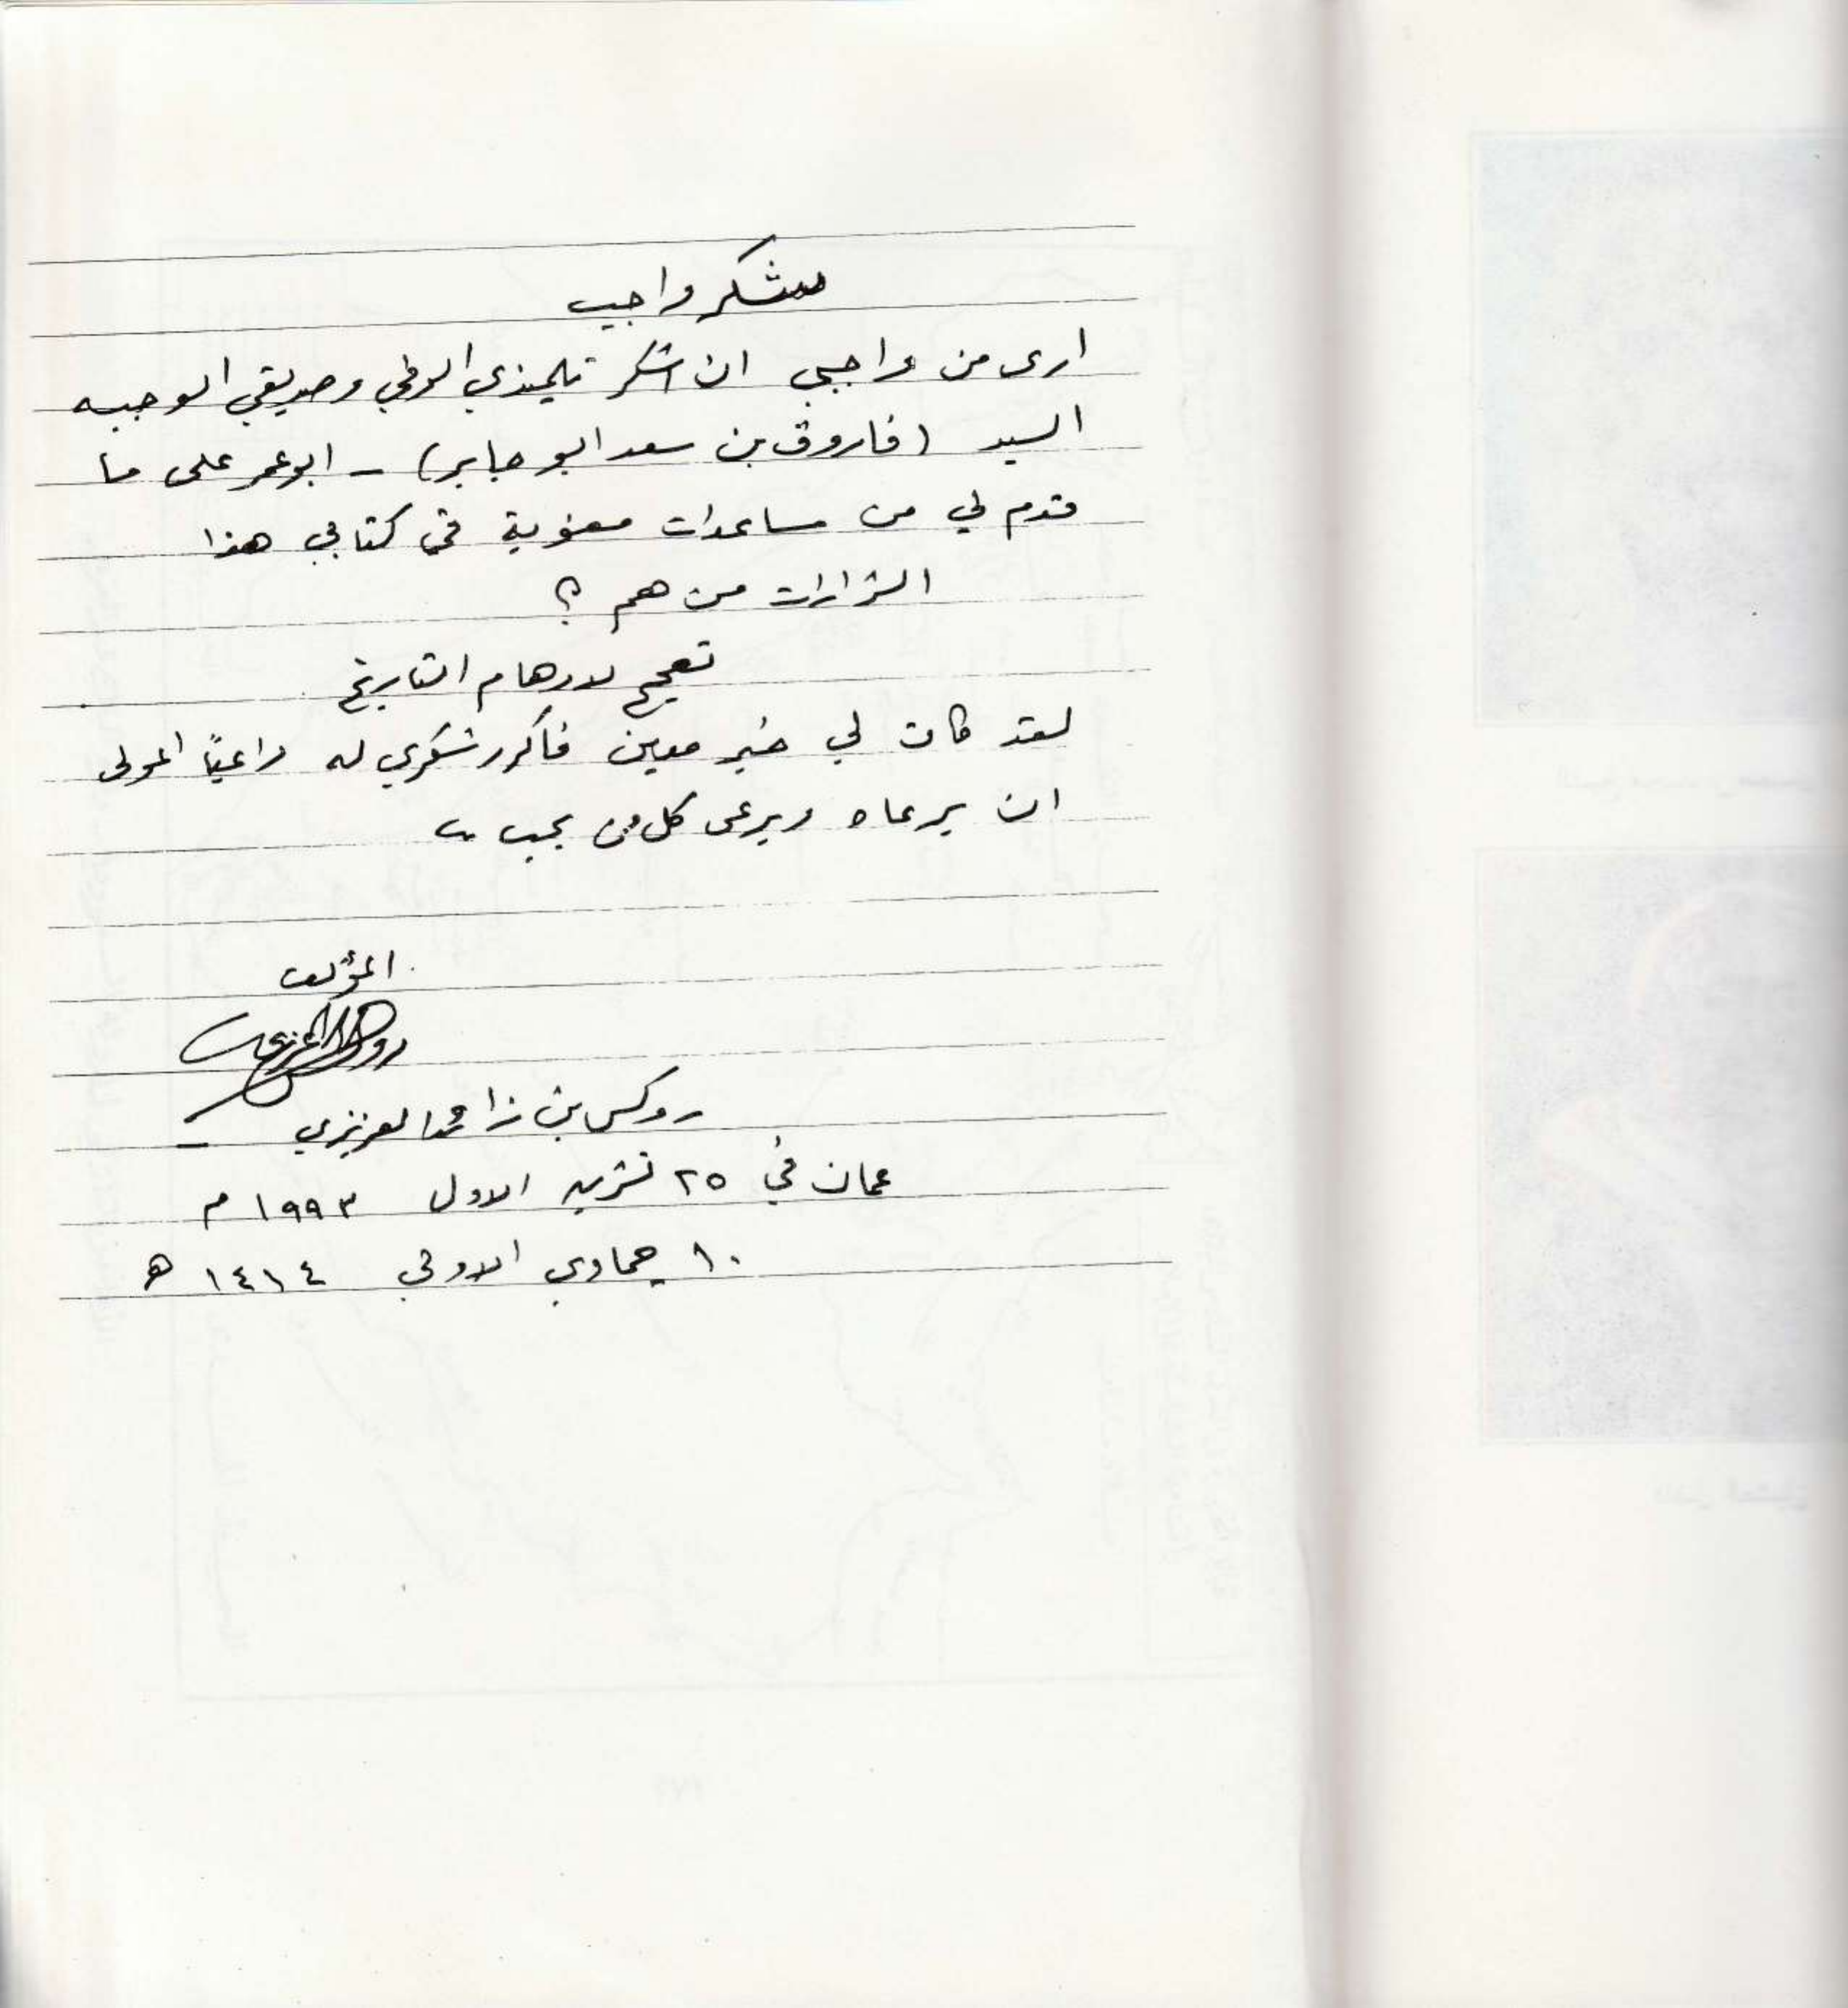 شكر واجب
ارى من واجبي ان اشكر تلميذي الوفي وصديقي الوجيه
السيد (فاروق بن سعد ابو جابر) - ابو عمر على ما
قدم لي من مساعدات معنوية في كتابي هذا
الشرارات من هم ؟
تصحيح لاوهام التاريخ
لقد كان لي خير معين فاكرر شكري له داعياً المولى
ان يرعاه ويرعى كل من يحب
المؤلف
روكس بن زائد العزيزي
عمان في ٢٥ تشرين الاول ١٩٩٣ م
١٠ جمادى الاولى ١٤١٤ هـ